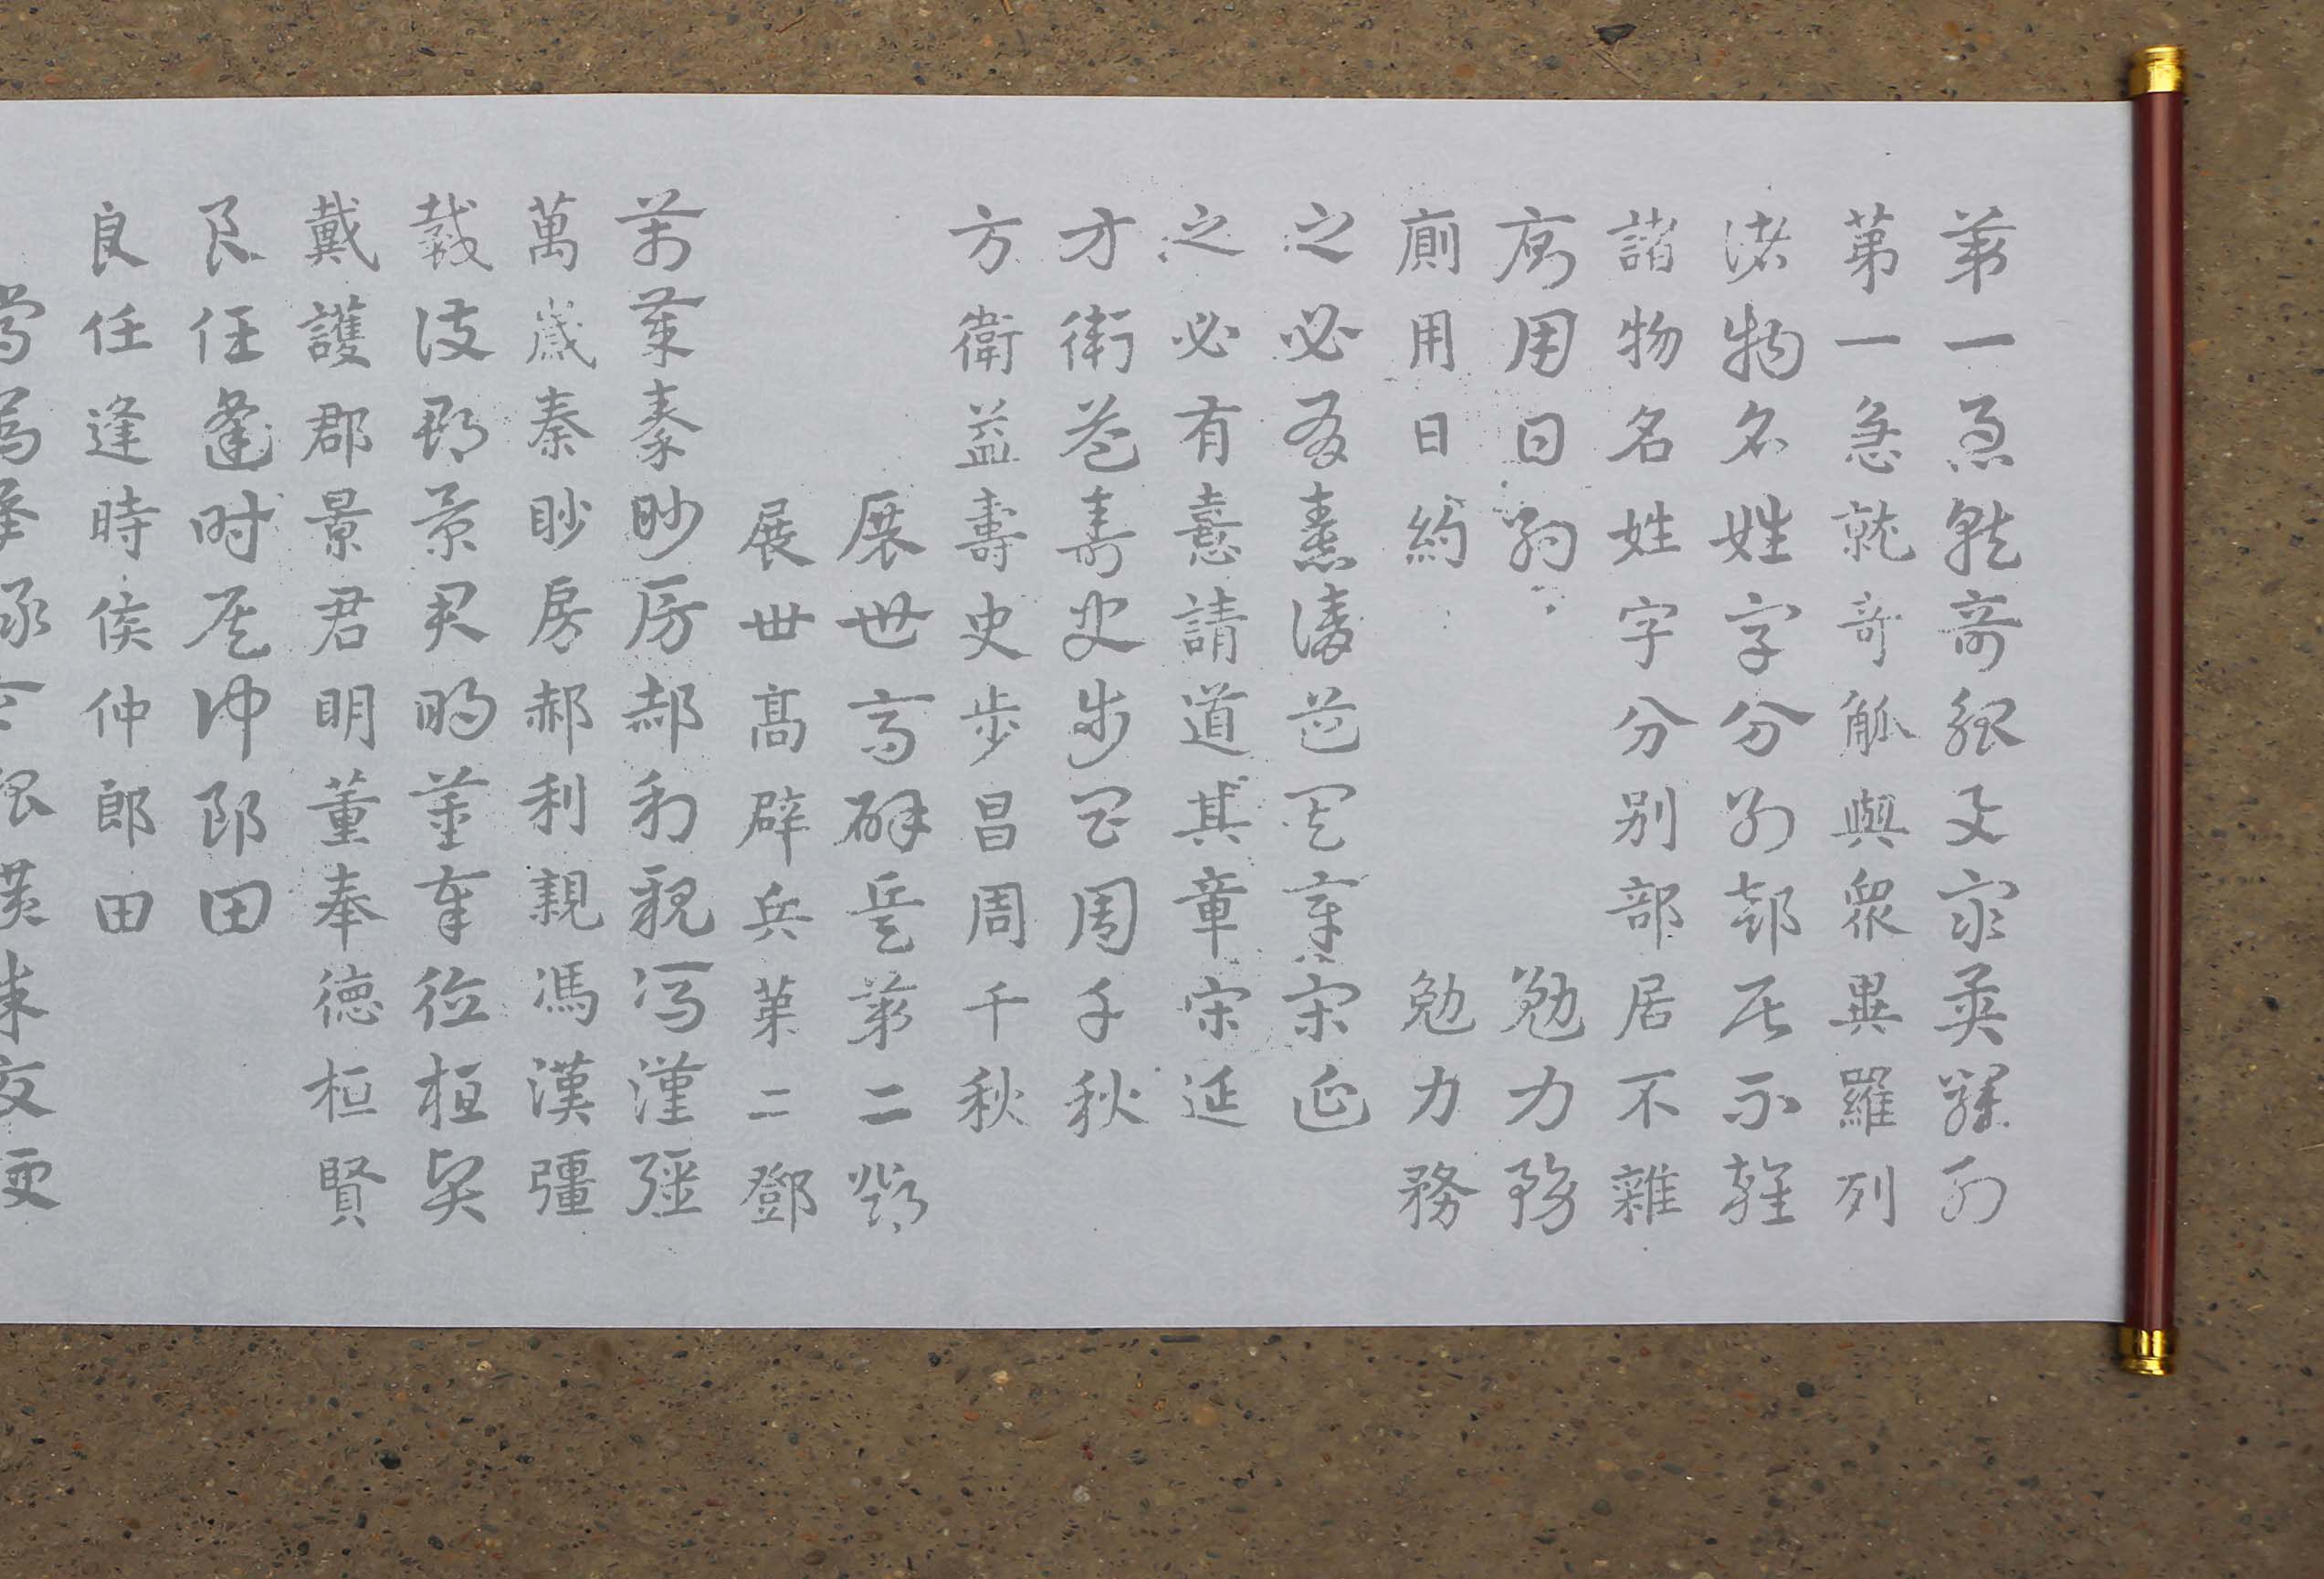 第一急就奇觚與眾異羅列
第一急就奇觚與眾異羅列
諸物名姓字分別部居不雜
諸物名姓字分別部居不雜
廁用日約 勉力務
廁用日約 勉力務
之必有憙請道其章宋延
之必有憙請道其章宋延
方衛益壽史步昌周千秋
方衛益壽史步昌周千秋
展世高辟兵第二鄧
展世高辟兵第二鄧
萬歲秦眇房郝利親馮漢彊
萬歲秦眇房郝利親馮漢彊
戴護郡景君明董奉德桓賢
戴護郡景君明董奉德桓賢
良任逢時侯仲郎田
良任逢時侯仲郎田